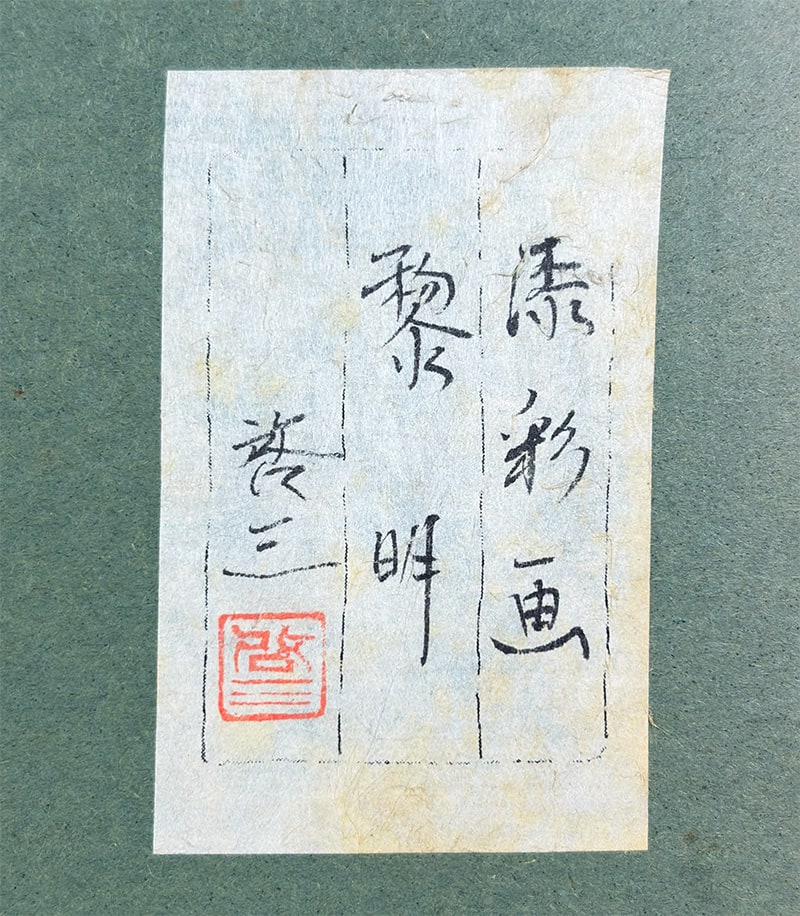 漆彩画
黎明
啓三
啓三